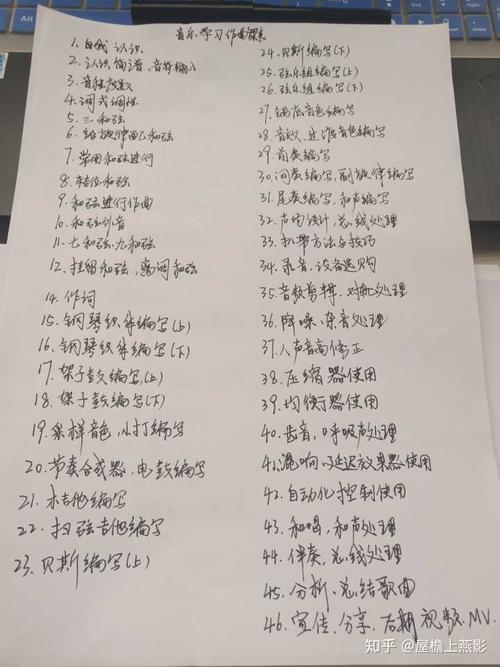 音乐学习作曲课表
1. 自我认识
2. 认识简谱、音符输入
3. 音程度数
4. 调式调性
5. 三和弦
6. 给旋律配和弦
7. 常用和弦进行
8. 转位和弦
9. 和弦进行作曲
10. 和弦外音
11. 七和弦九和弦
12. 挂留和弦，离调和弦
14. 作词
15. 钢琴织体编写(上)
16. 钢琴织体编写(下)
17. 架子鼓编写(上)
18. 架子鼓编写(下)
19. 采样音色，小打编写
20. 节奏合成器，电鼓编写
21. 木吉他编写
22. 扫弦吉他编写
23. 贝斯编写(上)
24. 贝斯编写(下)
25. 弦乐组编写(上)
26. 弦乐组编写(下)
27. 铺底音色编写
28. 音效，过渡音色编写
29. 前奏编写
30. 间奏编写，副旋律编写
31. 尾奏编写，和声编写
32. 声场设计，总线处理
33. 扒带方法与技巧
34. 录音，设备选购
35. 音频剪辑，对轨处理
36. 降噪，杂音处理
37. 人声音高修正
38. 压缩器使用
39. 均衡器使用
40. 齿音，呼吸声处理
41. 混响，延迟效果器使用
42. 自动化控制使用
43. 和唱，和声处理
44. 伴奏，总线处理
45. 分析，总结歌曲
46. 宣传，分享，后期视频，MV.
知乎 @屋檐上燕影